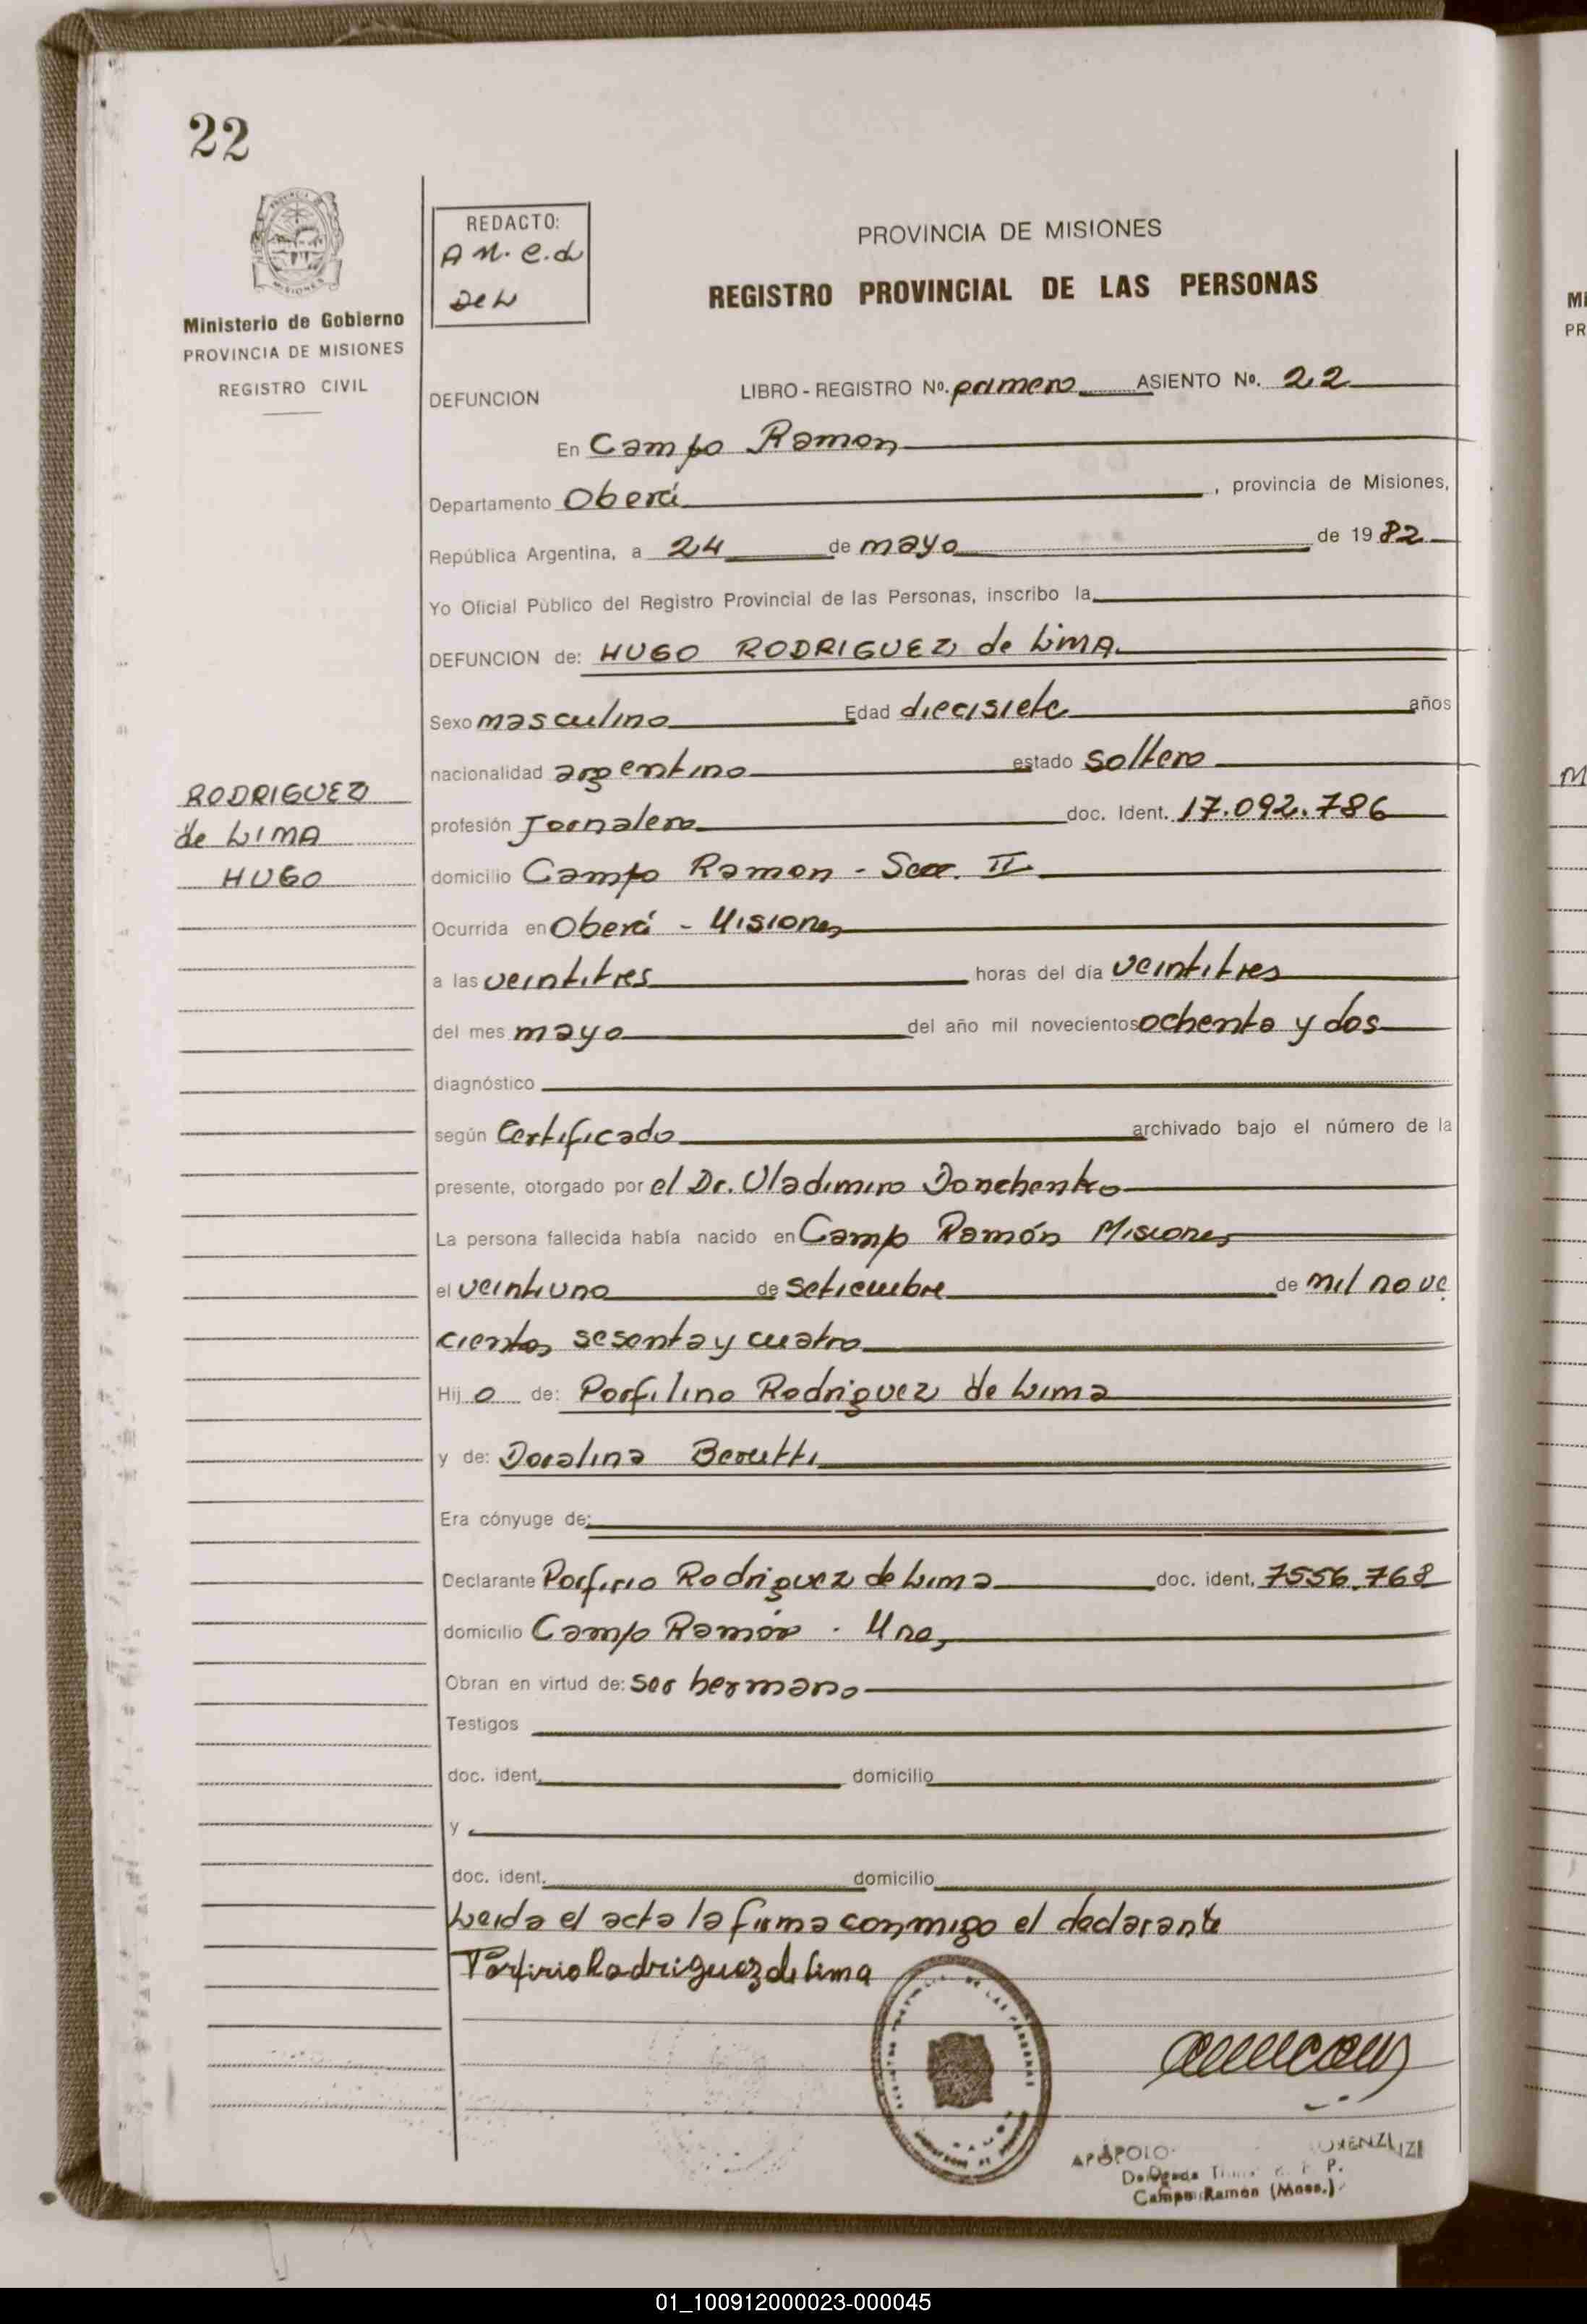 22
Ministerio de Gobierno
PROVINCIA DE MISIONES
REGISTRO CIVIL
REDACTO:
PROVINCIA DE MISIONES
REGISTRO PROVINCIAL DE LAS PERSONAS
DEFUNCION LIBRO - REGISTRO Nº. primero ASIENTO Nº. 22
En Campo Ramon
Departamento Oberá, provincia de Misiones,
República Argentina, a 24 de mayo de 1982
Yo Oficial Público del Registro Provincial de las Personas, inscribo la
DEFUNCION de: HUGO RODRIGUEZ de LIMA
Sexo masculino Edad diecisiete años
nacionalidad argentino estado soltero
RODRIGUEZ
de LIMA
HUGO
profesión Jornalero doc. Ident. 17.092.786
domicilio Campo Ramon - Secc. II
Ocurrida en Oberá - Misiones
a las veintitres horas del día veintitres
del mes mayo del año mil novecientos ochenta y dos
diagnóstico
según Certificado archivado bajo el número de la
presente, otorgado por el Dr. Vladimiro Donchenko
La persona fallecida había nacido en Campo Ramón Misiones
el veintiuno de setiembre de mil nove
cientos sesenta y cuatro
Hijo de: Porfilino Rodriguez de Lima
y de: Doralina Berutti
Era cónyuge de:
Declarante Porfirio Rodriguez de Lima doc. ident. 7556.768
domicilio Campo Ramón - Mnes
Obran en virtud de: ser hermano
Testigos
doc. ident. domicilio
y
doc. ident. domicilio
Leida el acta la firma conmigo el declarante
Porfirio Rodriguez de Lima
Campo Ramón (Mnes.)
01_100912000023-000045